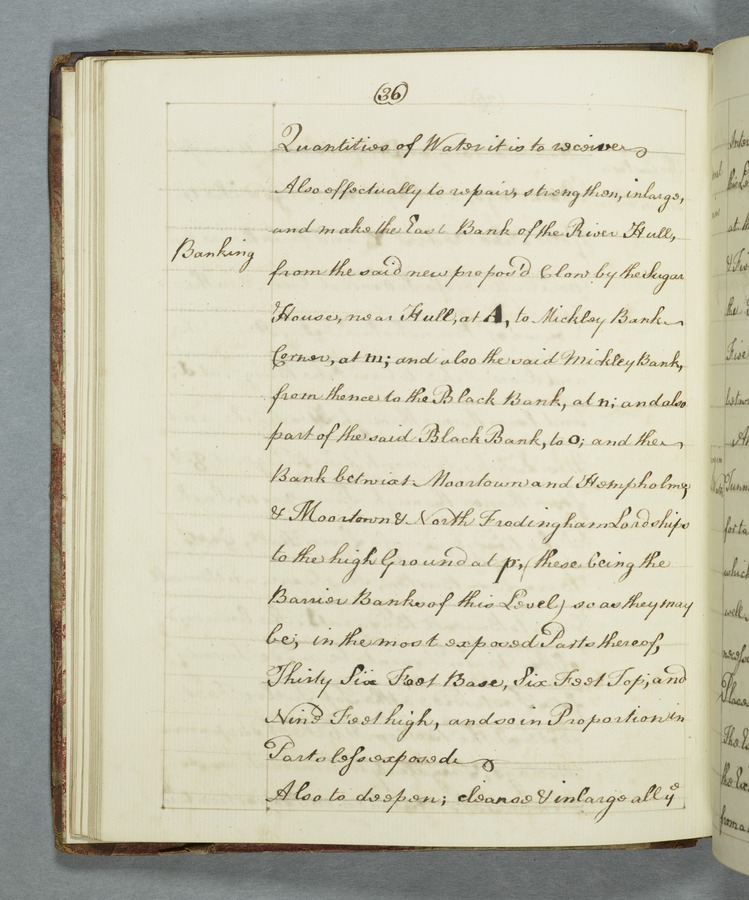 (36)
Quantities of Water it is to receive
Also effectually to repair, strengthen, inlarge,
and make the East Bank of the River Hull,
Banking
from the said new propos'd Clow by the Sugar
House, near Hull, at A, to Mickley Bank
Corner, at m; and also the said Mickley Bank,
from thence to the Black Bank, at n; and also
part of the said Black Bank, to o; and the
Bank betwixt Moortown and Hempholme,
& Moortown & North Frodingham Lordships
to the high Ground at p, (these being the
Barrier Banks of this Level) so as they may
be, in the most exposed Parts thereof,
Thirty Six Feet Base, Six Feet Top, and
Nine Feet high, and so in Proportion in
Parts less exposed
Also to deepen; cleanse & inlarge all ye